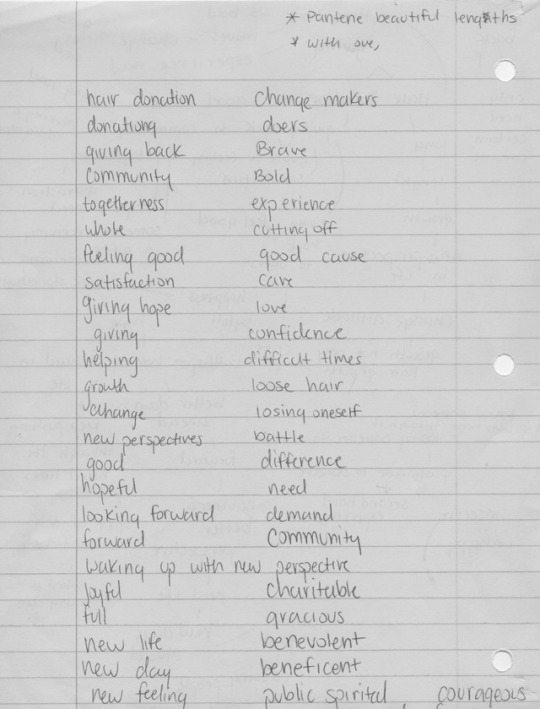 * Pantene beautiful lengths
* with ove,
hair donation change makers
donationg doers
giving back Brave
community Bold
togetherness experience
whole cutting off
feeling good good cause
satisfaction care
giving hope love
giving confidence
helping difficult times
growth loose hair
change losing oneself
new perspectives battle
good difference
hopeful need
looking forward demand
forward Community
waking up with new perspective
joyful charitable
full gracious
new life benevolent
new day beneficent
new feeling public spirited, courageous